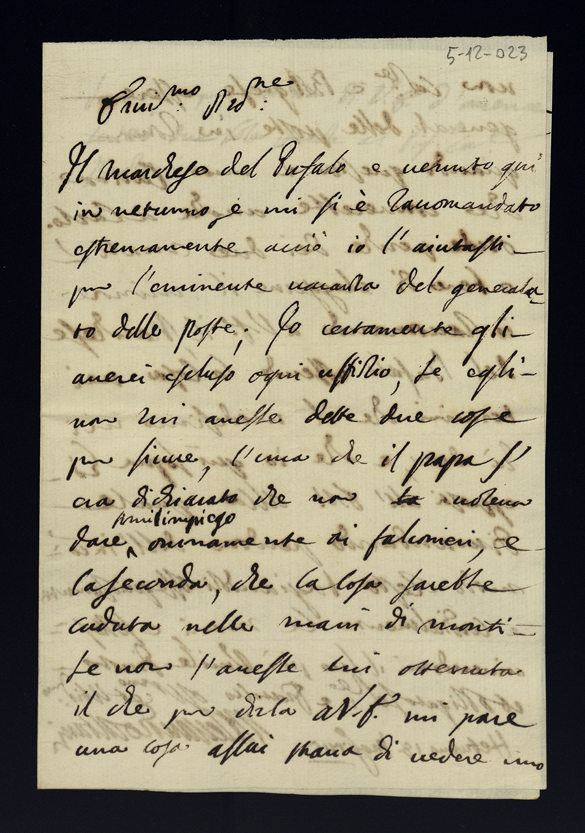 5-12-023
Emi.mo Pro.ne
Il marchese del Bufalo e venuto qui
in netunno, e mi si è racomandato
estremamente acciò io l'aiutassi
per l'eminente vacanza del generala-
to delle poste; Io certamente gli
averei escluso ogni uffizio, se egli
non mi avesse dette due cose
per sicure, l'una che il papa s'
era dichiarato che non la voleva
dare simil impiego onninamente ai falconieri, e
la seconda, che la cosa sarebbe
caduta nelle mani di monti
se non l'avesse lui ottenuta
il che per dirla a V.E. mi pare
una cosa assai strana di vedere uno